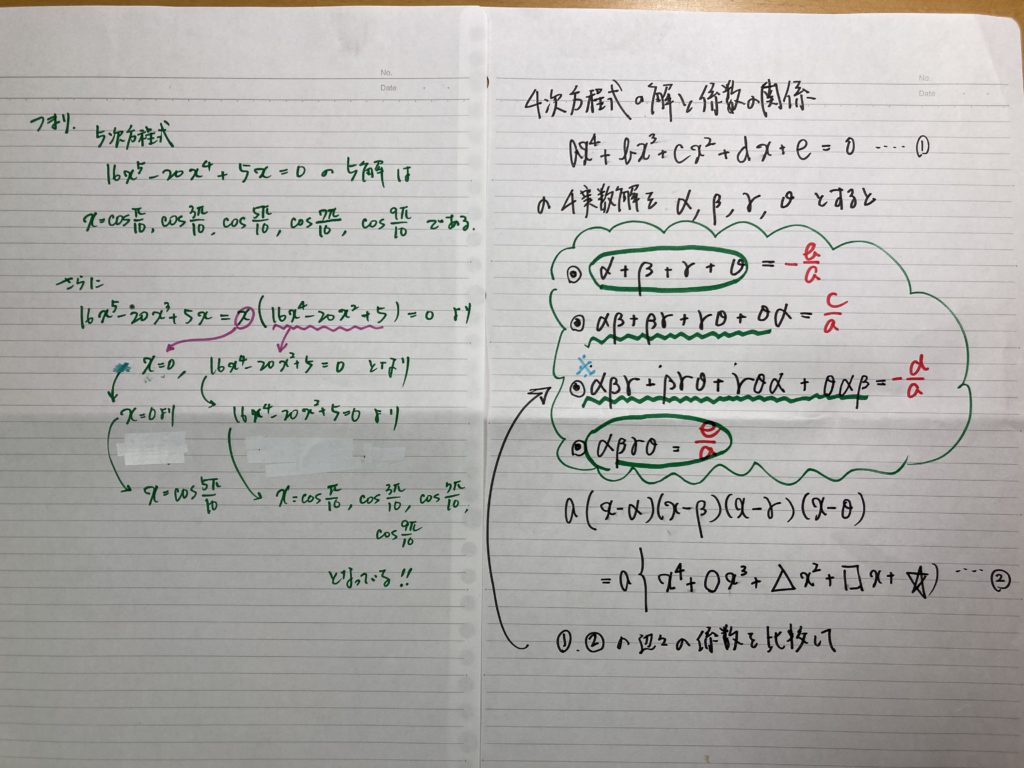 No.
Date
つまり、
5次方程式
16x⁵-20x⁴+5x=0 の 5解は
x=cos π/10, cos 3π/10, cos 5π/10, cos 7π/10, cos 9π/10 である.
さらに
16x⁵-20x³+5x = x(16x⁴-20x²+5)=0 より
x=0, 16x⁴-20x²+5=0 となり
x=0より 16x⁴-20x²+5=0 より
x=cos 5π/10 x=cos π/10, cos 3π/10, cos 7π/10,
cos 9π/10
となっている!!
No.
Date
4次方程式の解と係数の関係
ax⁴+bx³+cx²+dx+e=0 …… ①
の4実数解を α, β, γ, θ とすると
◉ α+β+γ+θ = -b/a
◉ αβ+βγ+γθ+θα = c/a
※
◉ αβγ+βγθ+γθα+θαβ = -d/a
◉ αβγθ = e/a
a(x-α)(x-β)(x-γ)(x-θ)
=a{x⁴+○x³+△x²+□x+☆) …… ②
①.②の辺々の係数を比較して